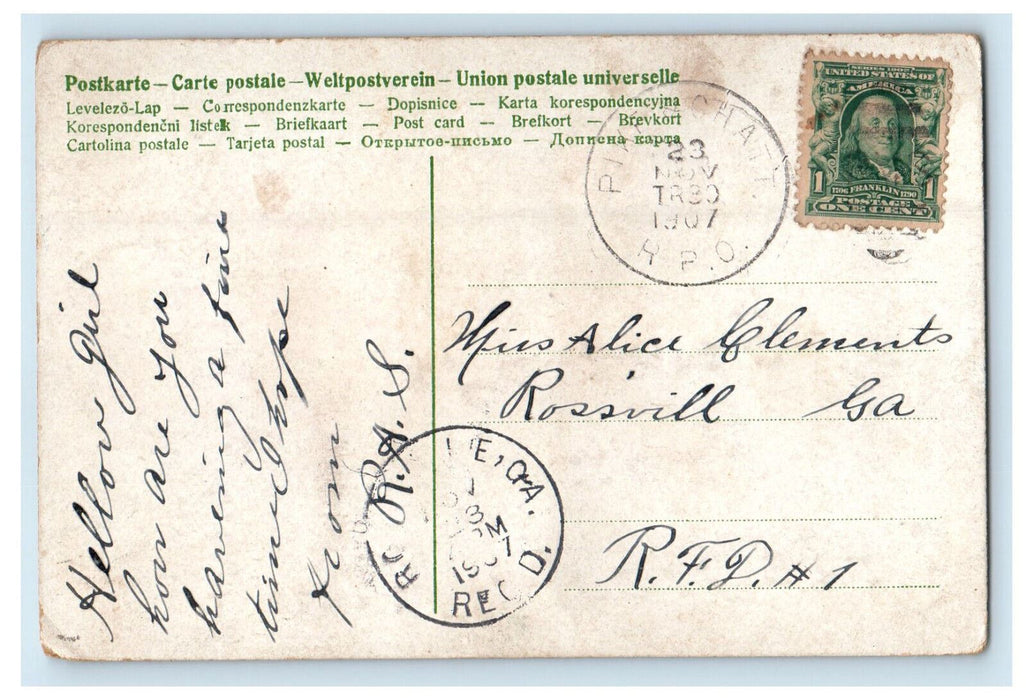 Postkarte — Carte postale — Weltpostverein — Union postale universelle
Levelező-Lap — Correspondenzkarte — Dopisnice — Karta korespondencyjna
Korespondenční listek — Briefkaart — Post card — Brefkort — Brevkort
Cartolina postale — Tarjeta postal — Открытое-письмо — Дописна карта
CHATT.
23
NOV
TR30
1907
R.P.O.
SERIES 1902
UNITED STATES OF
AMERICA
1 1706 FRANKLIN 1790 1
POSTAGE
ONE CENT
Hellow Girl
how are you
haveing a fine
time I hope
from
R.A.S.
Miss Alice Clements
Rossvill Ga
R.F.D. #1
GA.
1907
REC'D.